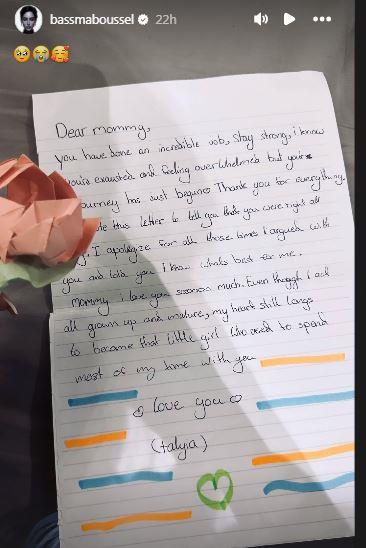 bassmaboussel 22h
🥹😭🥰
Dear mommy,
you have done an incredible job, stay strong, i know
you're exausted and feeling overwhelmed but your
journey has just begun. Thank you for everything,
this letter to tell you that you were right all
I apologize for all those times I argued with
you and told you I know what's best for me.
mommy i love you sooooo much. Even though I act
all grown up and mature, my heart still longs
to become that little girl who used to spend
most of my time with you
I love you
(talya)